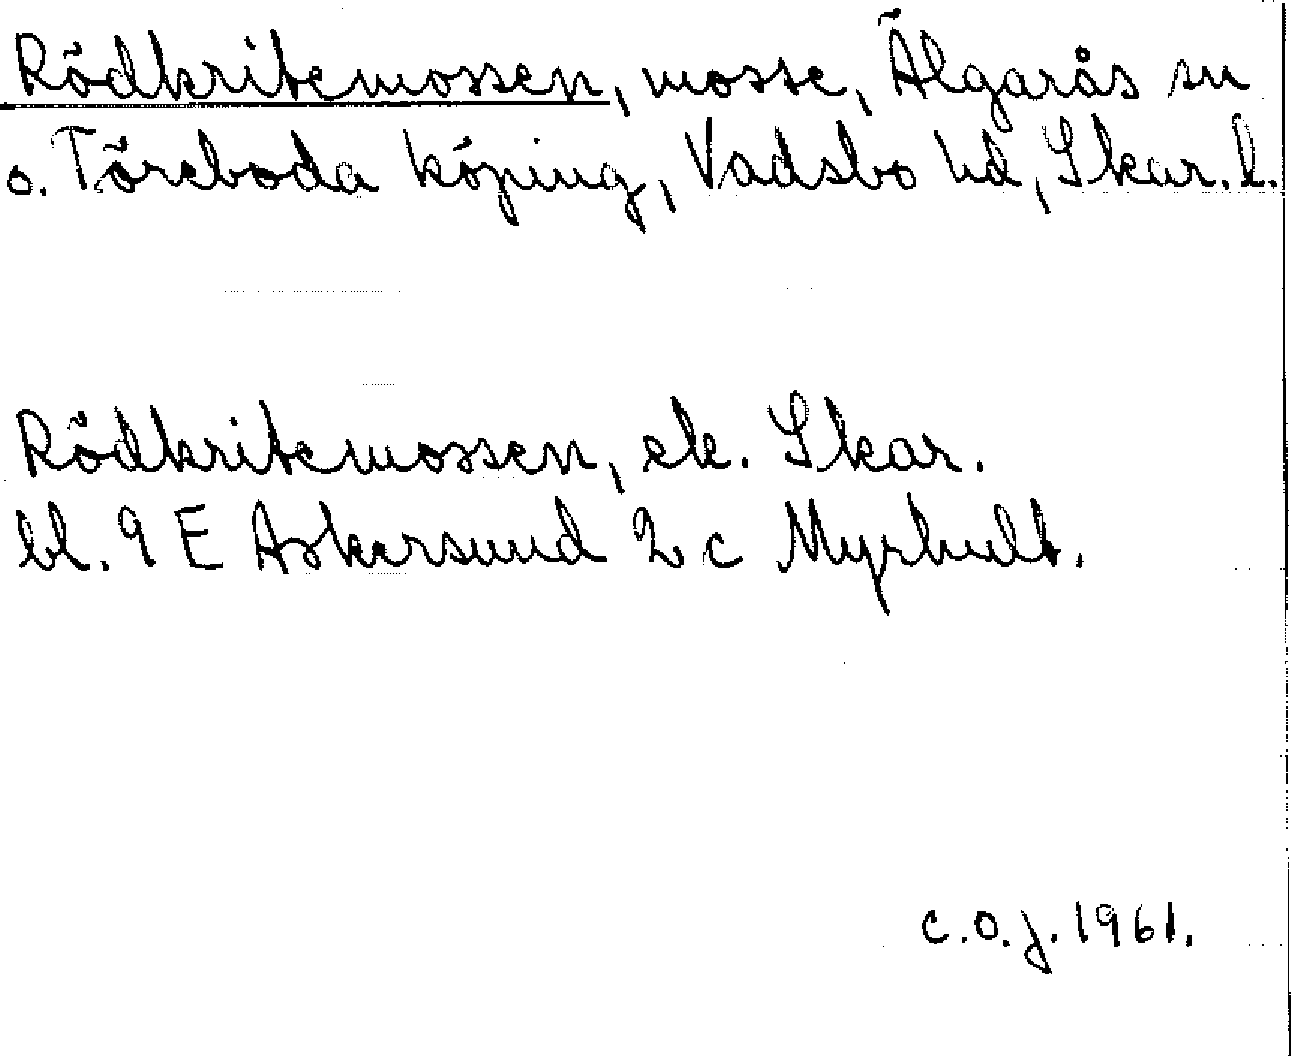 Rödkritemossen, mosse, Älgarås sn
o. Töreboda köping, Vadsbo hd, Skar. l.
Rödkritemossen, ek. Skar.
bl. 9 E Askersund 2 c Myrhult.
C.O.J. 1961.